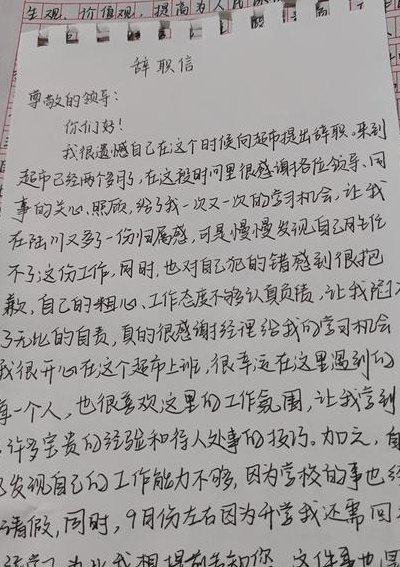 生观、价值观,提高为人民
辞职信
尊敬的领导:
你们好!
我很遗憾自己在这个时候向超市提出辞职。来到
超市已经两个多月了,在这段时间里很感谢各位领导、同
事的关心、照顾,给了我一次又一次的学习机会,让我
在陆川又多了一份归属感,可是慢慢发现自己胜任
不了这份工作,同时,也对自己犯的错感到很抱
歉,自己的粗心、工作态度不够认真负责,让我陷入
了无比的自责,真的很感谢经理给我的学习机会
我很开心在这个超市上班,很幸运在这里遇到的
每一个人,也很喜欢这里的工作氛围,让我学到
许多宝贵的经验和待人处事的技巧。加之,自
己发现自己的工作能力不够,因为学校的事也经
请假,同时,9月份左右因为升学我还需回
为此我想提前告知您,这件事也